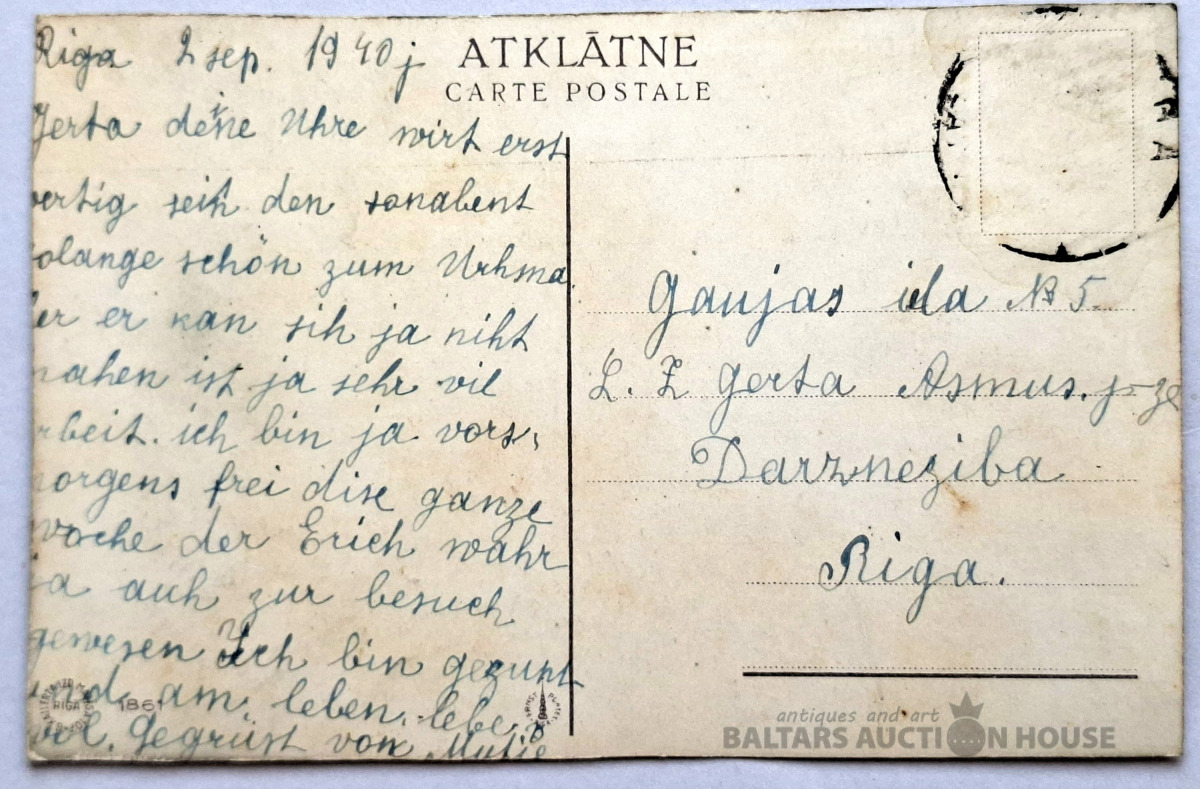 Riga 2 sep. 1940 j
ATKLĀTNE
CARTE POSTALE
Gerta deine Uhre wirt erst
vertig seih den sonabent
solange schön zum Urhma
her er kan sih ja niht
mahen ist ja sehr vil
arbeit. ich bin ja vors,
morgens frei dise ganze
woche der Erich wahr
ja auh zur besuch
gewesen Ich bin gezunt
und am leben. lebe
vol. Gegrüst von Mutie
Gaujas iela № 5
L. Z Gerta Asmus.
Darzneziba
Riga.
RIGA
1861
antiques and art
BALTARS AUCTION HOUSE